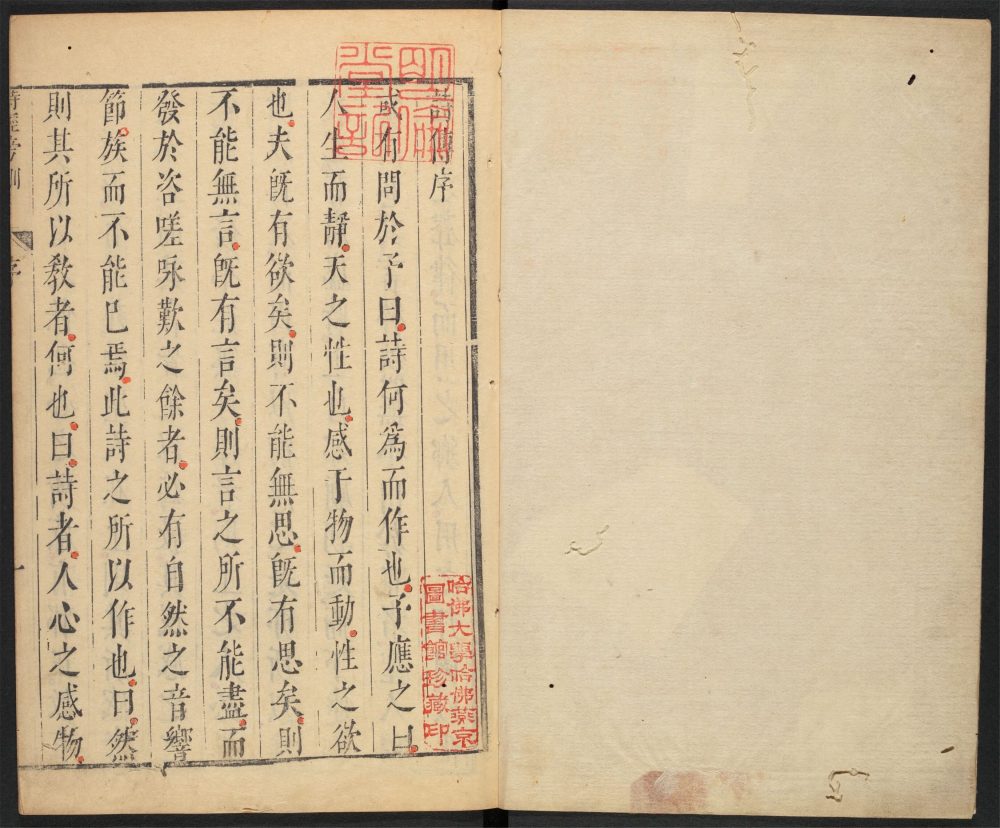 詩傳序
或有問於予曰詩何為而作也予應之曰
人生而靜天之性也感于物而動性之欲
也夫旣有欲矣則不能無思旣有思矣則
不能無言旣有言矣則言之所不能盡而
發於咨嗟咏歎之餘者必有自然之音響
節族而不能已焉此詩之所以作也曰然
則其所以敎者何也曰詩者人心之感物
詩經旁訓
序
一
哈佛大學哈佛燕京
圖書館珍藏印